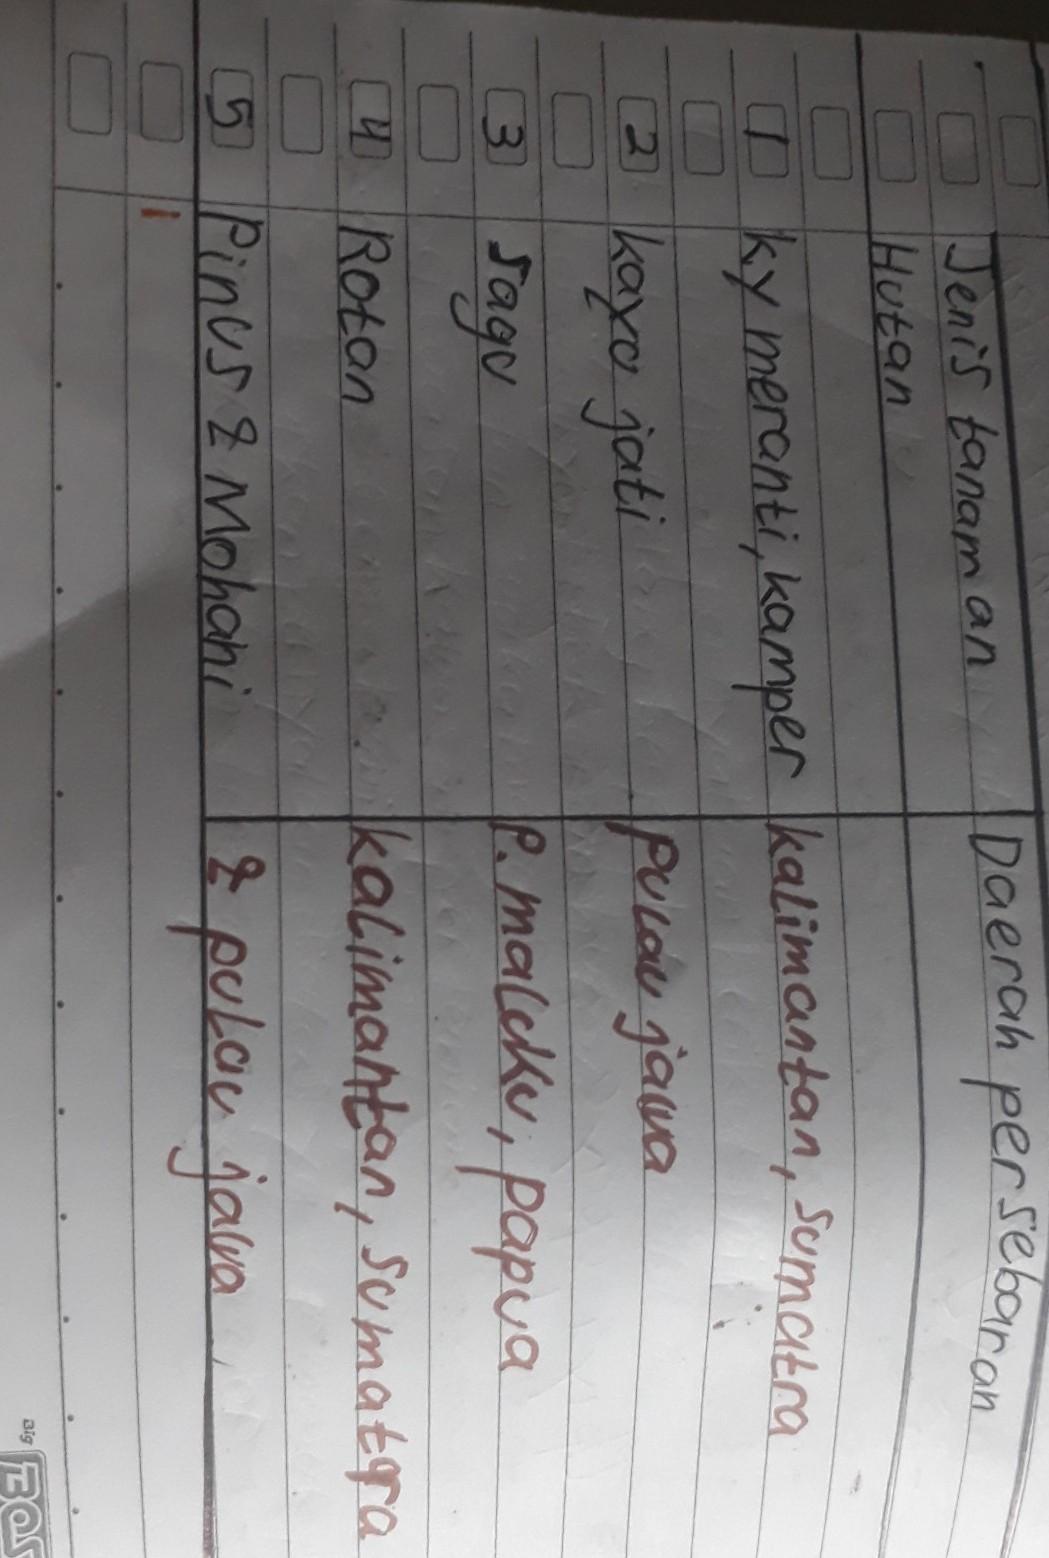 Jenis tanaman Daerah persebaran
Hutan
1 ky meranti, kamper kalimantan, sumatra
2 kayu jati pulau jawa
3 sagu P. maluku, papua
4 Rotan kalimantan, sumatra
5 Pinus & Mohani & pulau jawa
Big